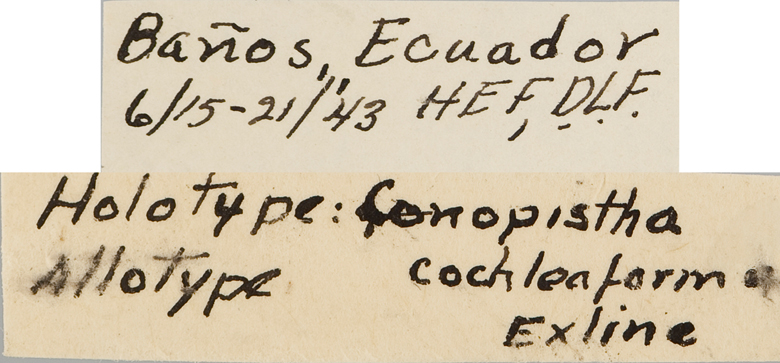 Baños, Ecuador
6/15-21/'43 HEF, D.L.F.
Holotype: Conopistha
Allotype cochleaform
Exline